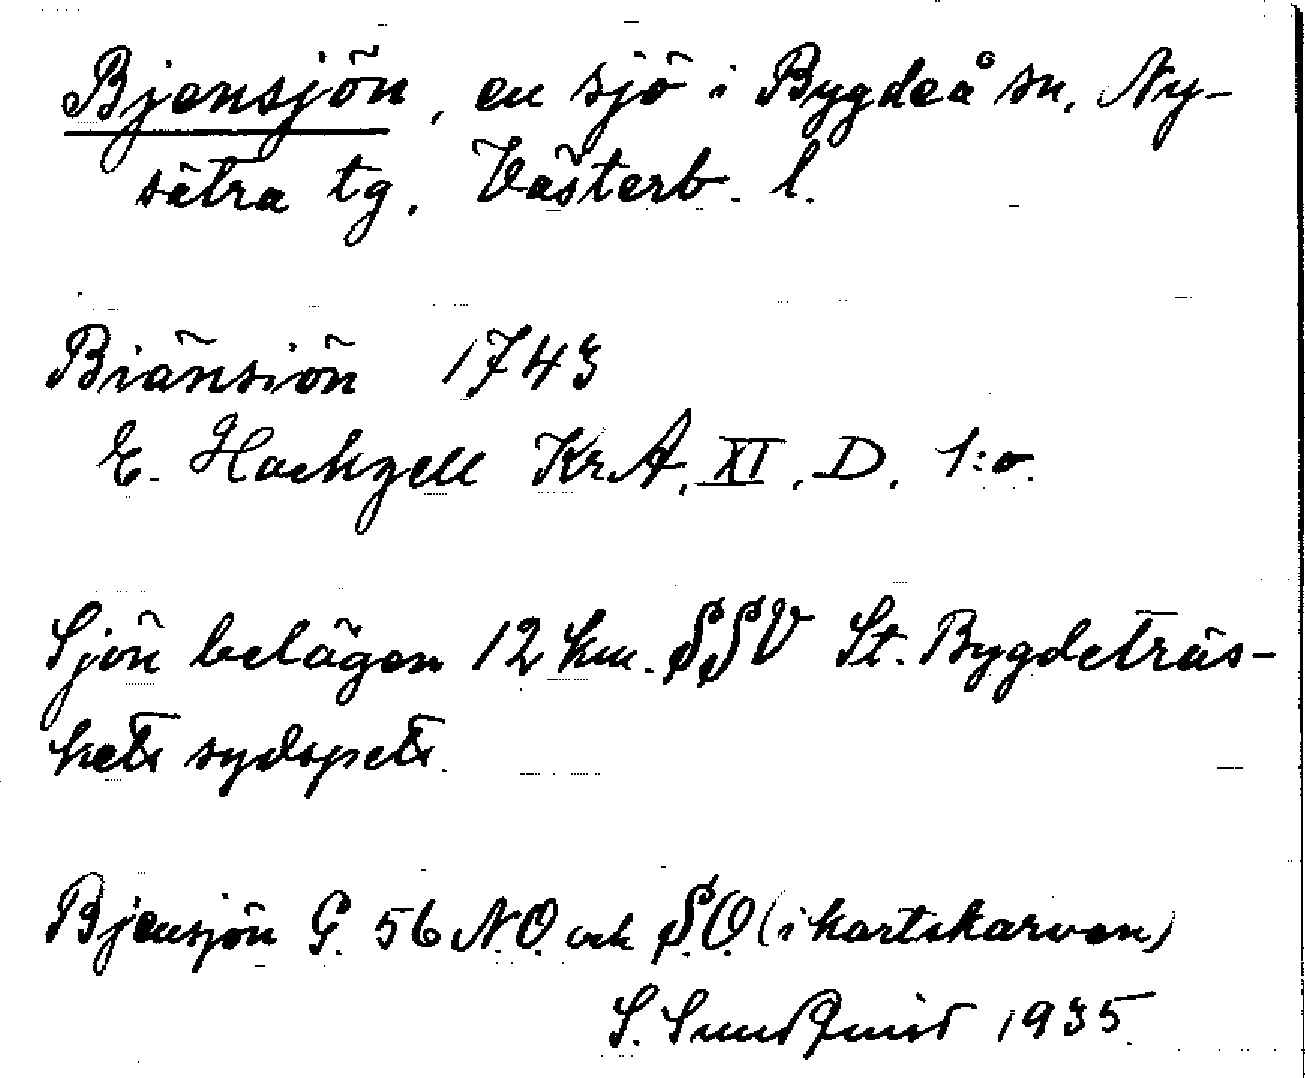 Bjensjön, en sjö i Bygdeå sn, Ny-
sätra tg. Västerb. l.
Biänsiön 1743
E. Hackzell KrA. XI. D. 1:o.
Sjön belägen 12 km. SSV St. Bygdeträs-
kets sydspets.
Bjensjön G. 56 N.O. och S.O. (i kartskarven)
S. Sundquist 1935.